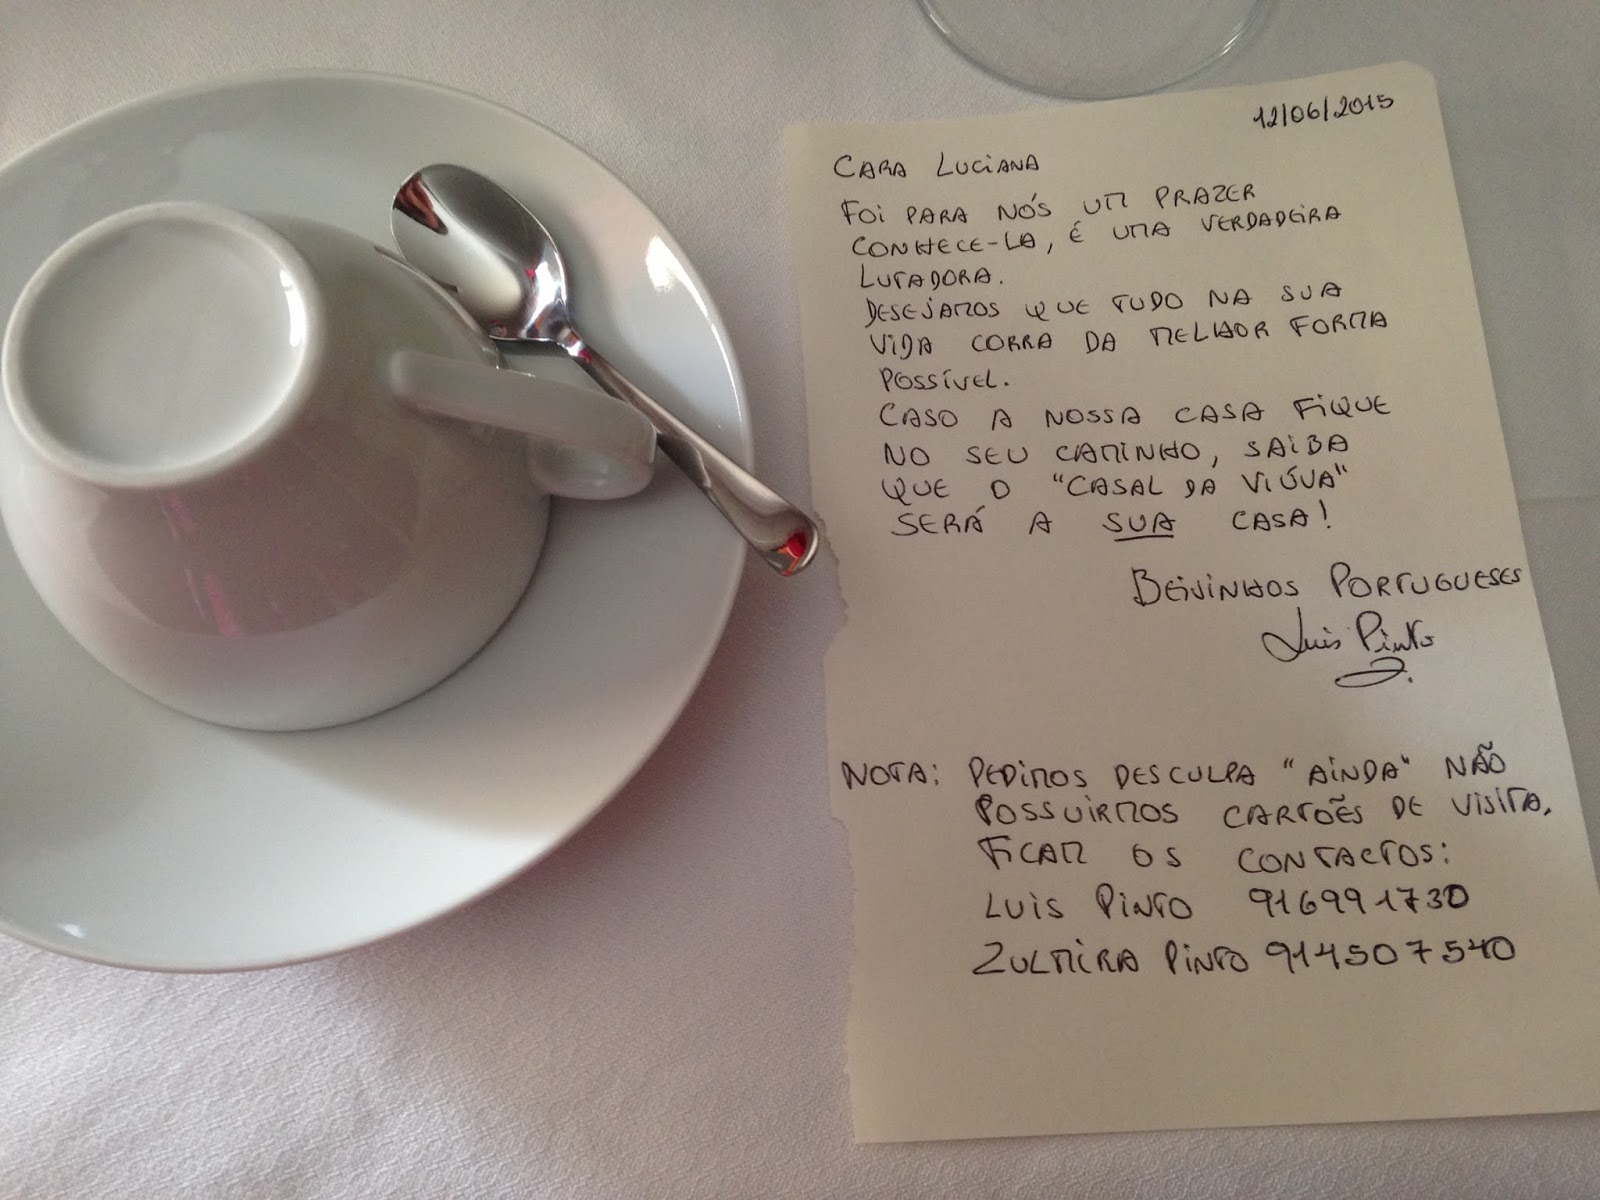 12/06/2015
CARA LUCIANA
FOI PARA NÓS UM PRAZER
CONHECE-LA, É UMA VERDADEIRA
LUTADORA.
DESEJAMOS QUE TUDO NA SUA
VIDA CORRA DA MELHOR FORMA
POSSÍVEL.
CASO A NOSSA CASA FIQUE
NO SEU CAMINHO, SAIBA
QUE O "CASAL DA VIÚVA"
SERÁ A SUA CASA!
BEIJINHOS PORTUGUESES
Luis Pinto
NOTA: PEDIMOS DESCULPA "AINDA" NÃO
POSSUIRMOS CARTÕES DE VISITA.
FICAM OS CONTACTOS:
LUIS PINTO 916991730
ZULMIRA PINTO 914507540